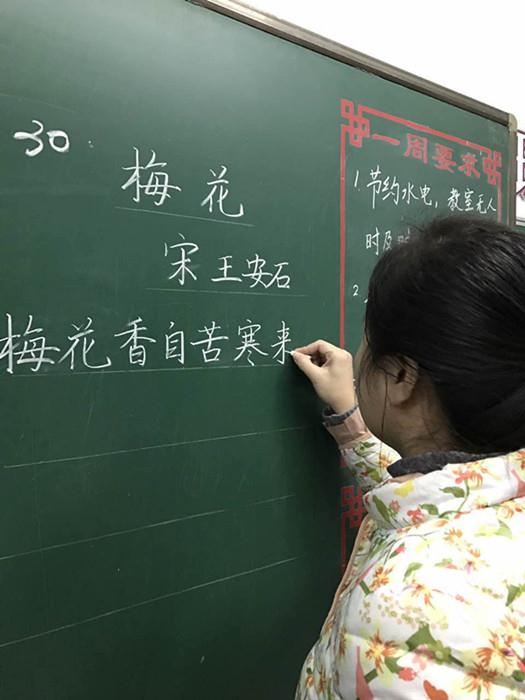 30
梅花
宋 王安石
梅花香自苦寒来
一周要求
1.节约水电，教室无人
时及时
2.